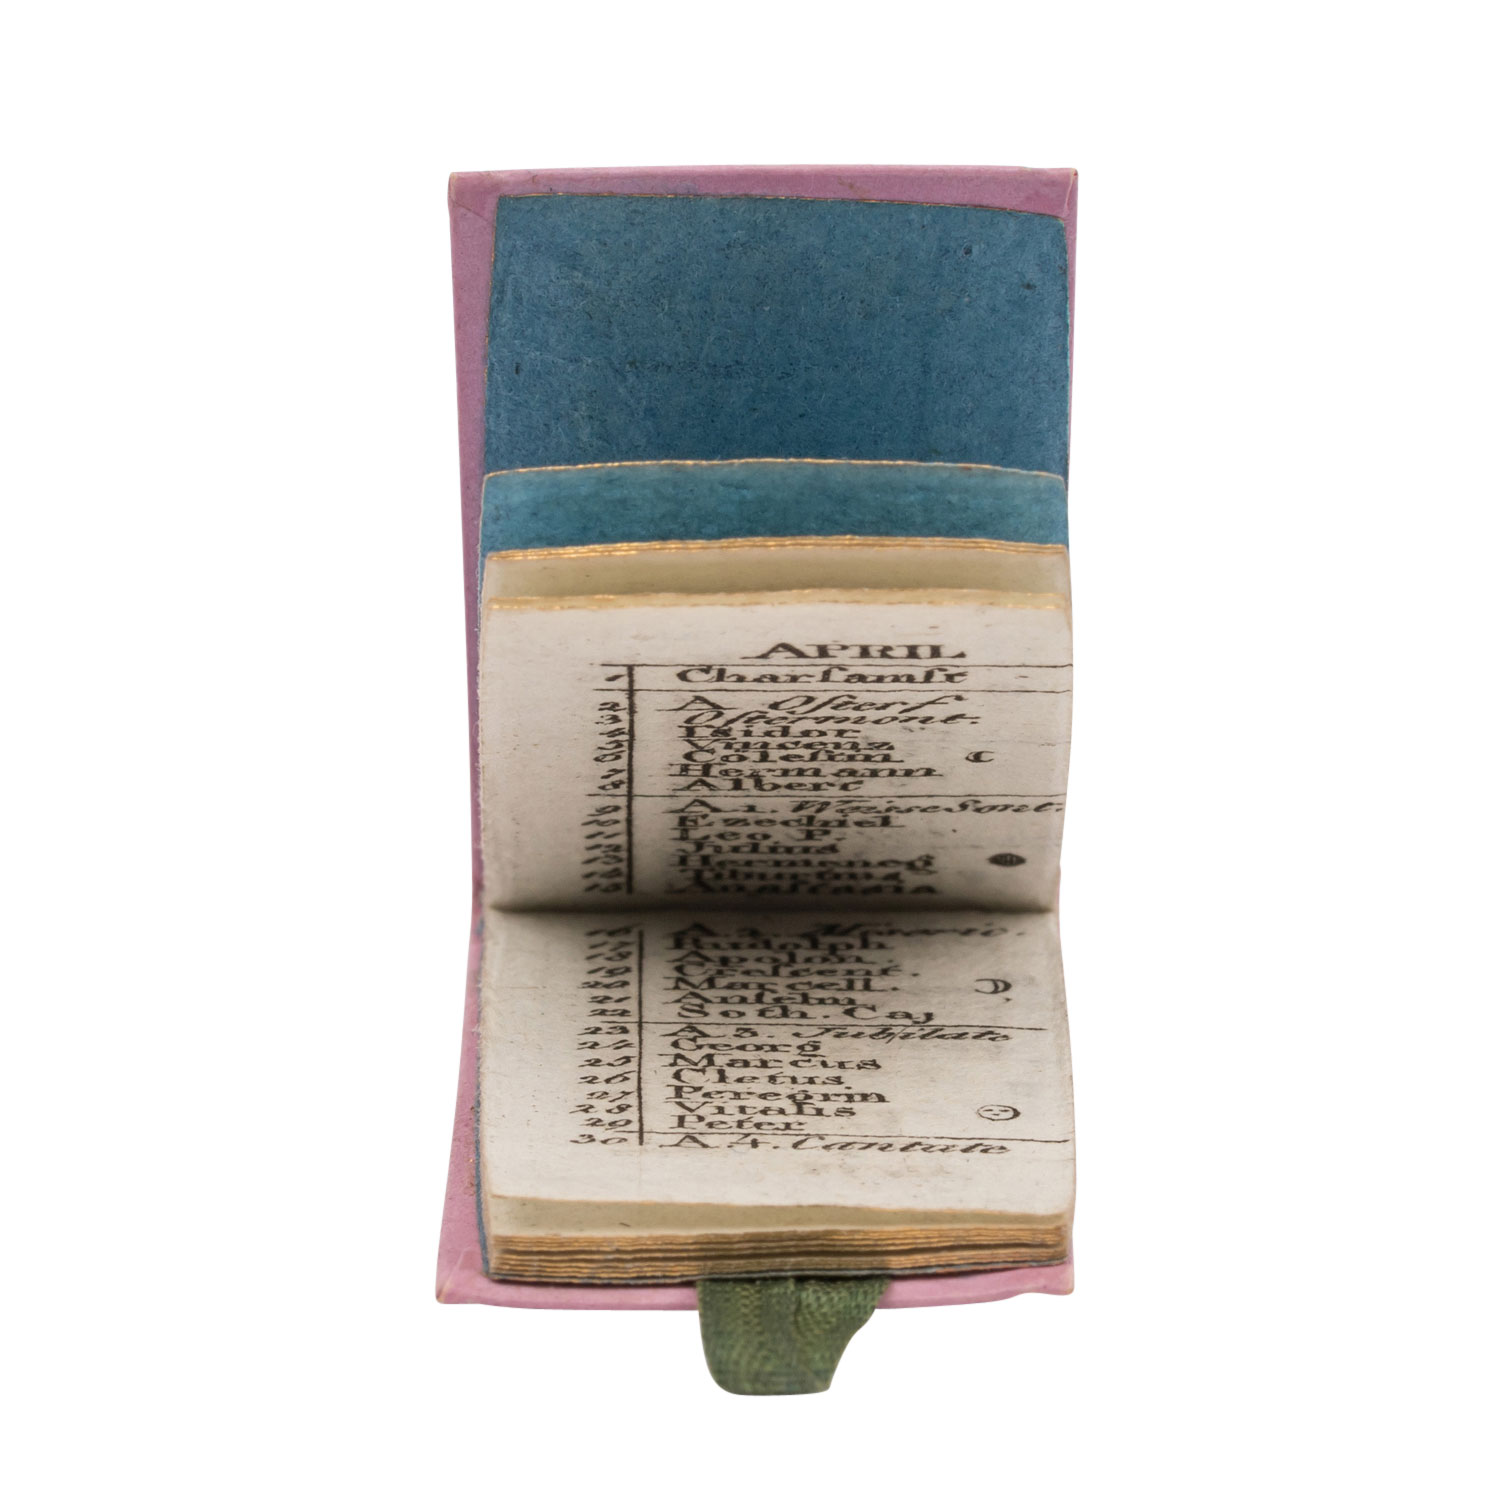 APRIL
1 Charſamſt
2 A. Oſterf
3 Oſtermont.
4 Isidor
5 Vincenz
6 Cöleſtin
7 Hermann
8 Albert
9 A 1. Weiſe Sont.
10 Ezechiel
11 Leo P.
12 Julius
13 Hermeneg
14 Tiburtius
15 Anaſtasia
16 A. 2.
17 Rudolph
18 Apolon.
19 Creſcent.
20 Marcell.
21 Anſelm
22 Soth. Caj
23 A 3. Jubilate
24 Georg
25 Marcus
26 Cletus
27 Peregrin
28 Vitalis
29 Peter
30 A. 4. Cantate